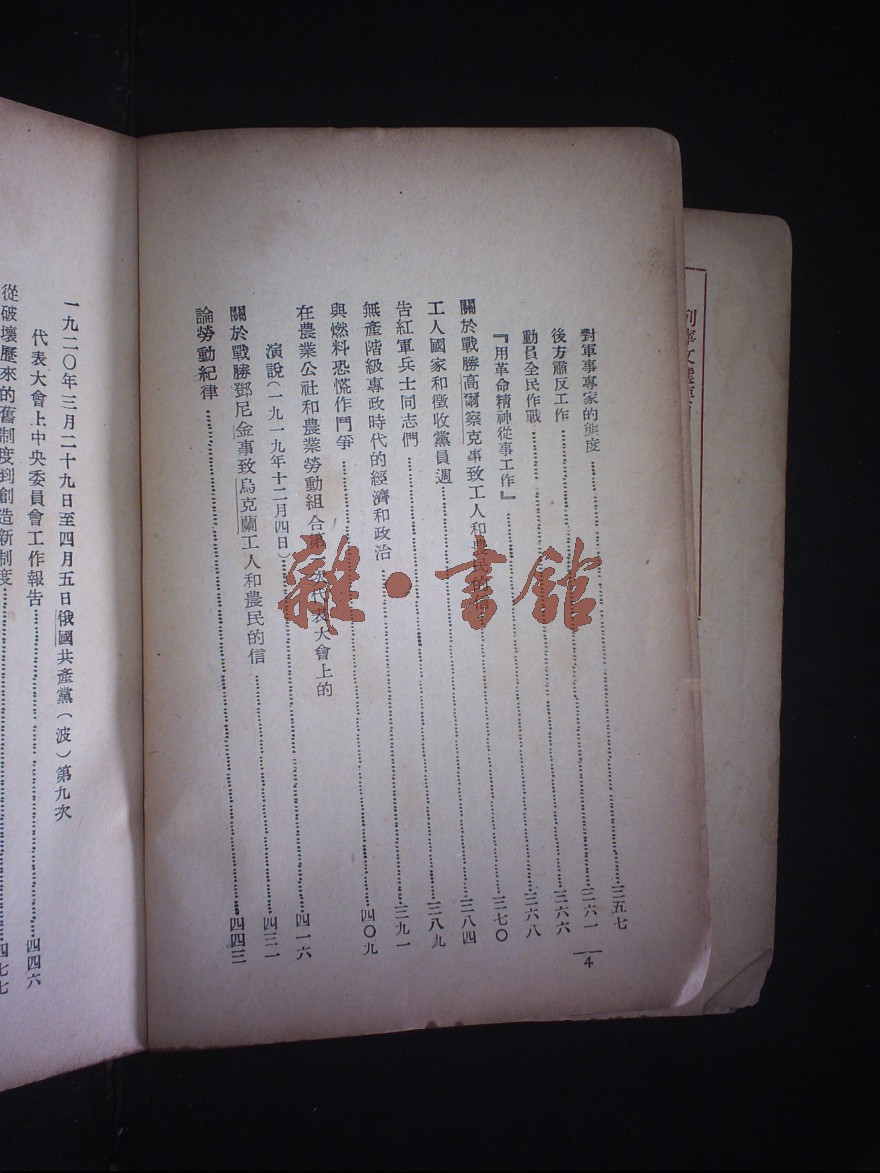 列寧文選
對軍事專家的態度……三五七
後方肅反工作……三六一
動員全民作戰……三六六
『用革命精神從事工作』……三六八
關於戰勝高爾察克事致工人和農民的信……三七〇
工人國家和徵收黨員週……三八四
告紅軍兵士同志們……三八九
無產階級專政時代的經濟和政治……三九一
與燃料恐慌作鬥爭……四〇九
在農業公社和農業勞動組合第一次代表大會上的
演說(一九一九年十二月四日)……四一六
關於戰勝鄧尼金事致烏克蘭工人和農民的信……四三一
論勞動紀律……四四三
4
一九二〇年三月二十九日至四月五日俄國共產黨(波)第九次
代表大會上中央委員會工作報告……四四六
從破壞歷來的舊制度到創造新制度……四七七
雜·書館